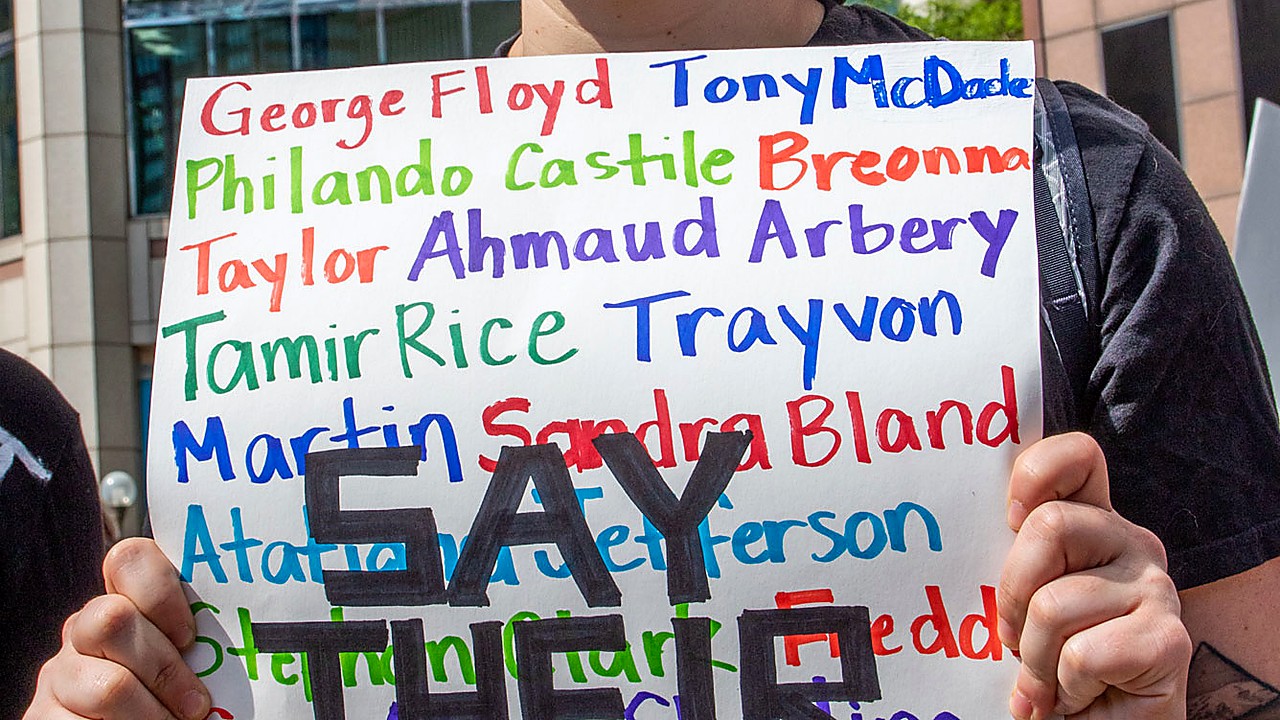 George Floyd Tony McDade
Philando Castile Breonna
Taylor Ahmaud Arbery
Tamir Rice Trayvon
Martin Sandra Bland
SAY
Atatiana Jefferson
Stephon Clark Fredd
THEIR